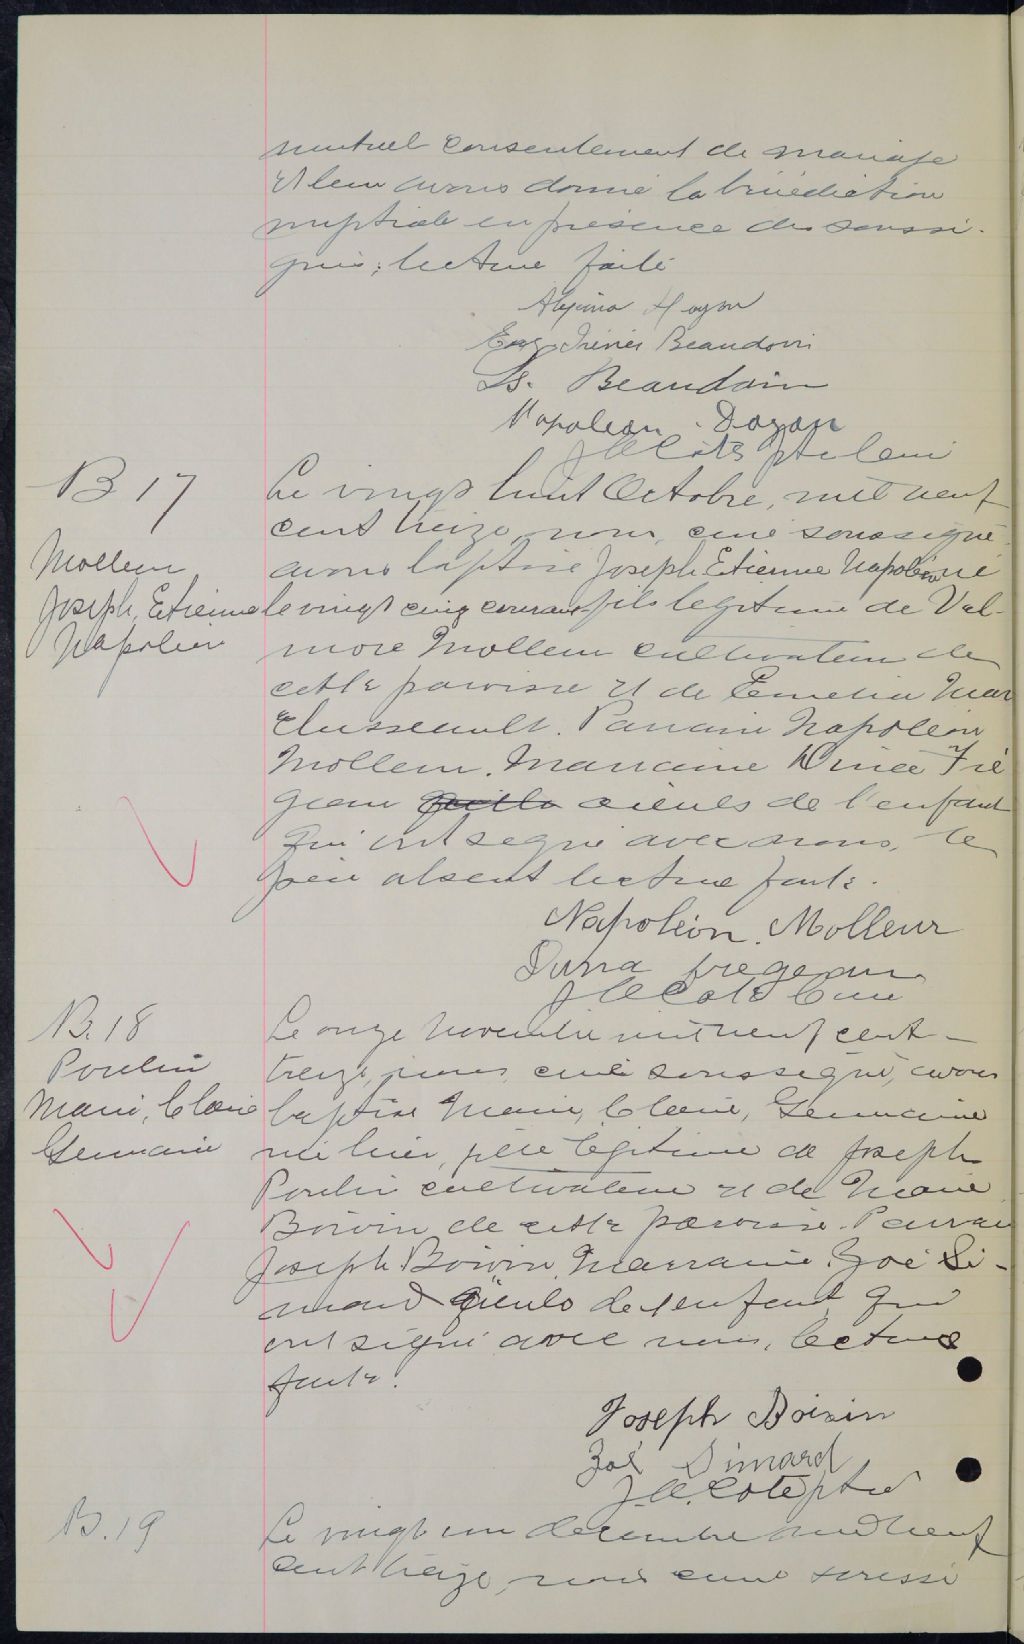 mutuel consentement de mariage
et leur avons donné la bénédiction
nuptiale en présence des soussi-
gnés; lecture faite
Alexina Doyon
Beaudoin
Ls. Beaudoin
Napoleon Doyon
J A Coté ptre Curé
B 17
Le vingt huit Octobre, mil neuf
cent treize, nous, curé soussigné
avons baptisé Joseph Etienne Napoléon né
Molleur
Joseph, Etienne
Napoléon
le vingt cinq courant fils légitime de Val-
more Molleur cultivateur de
cette paroisse et de Emelia Mar
Clusseault. Parrain Napoléon
Molleur. Marraine Dina Fré
geau aïeuls de l'enfant
qui ont signé avec nous, le
père absent lecture faite.
Napoléon. Molleur
Dina fregeau
J A Coté Curé
B. 18
Poulin
Marie, Claire
Germaine
Le onze Novembre mil neuf cent
treize, nous, curé soussigné, avons
baptisé Marie, Claire, Germaine
née hier, fille légitime de Joseph
Poulin cultivateur et de Marie
Boivin de cette paroisse. Parrain
Joseph Boivin, Marraine Zoé Si-
mard aïeuls de l'enfant qui
ont signé avec nous, lecture
faite.
Joseph Boivin
Zoé Simard
J.A. Coté ptre
B. 19
Le vingt un decembre mil neuf
cent treize, nous curé soussi